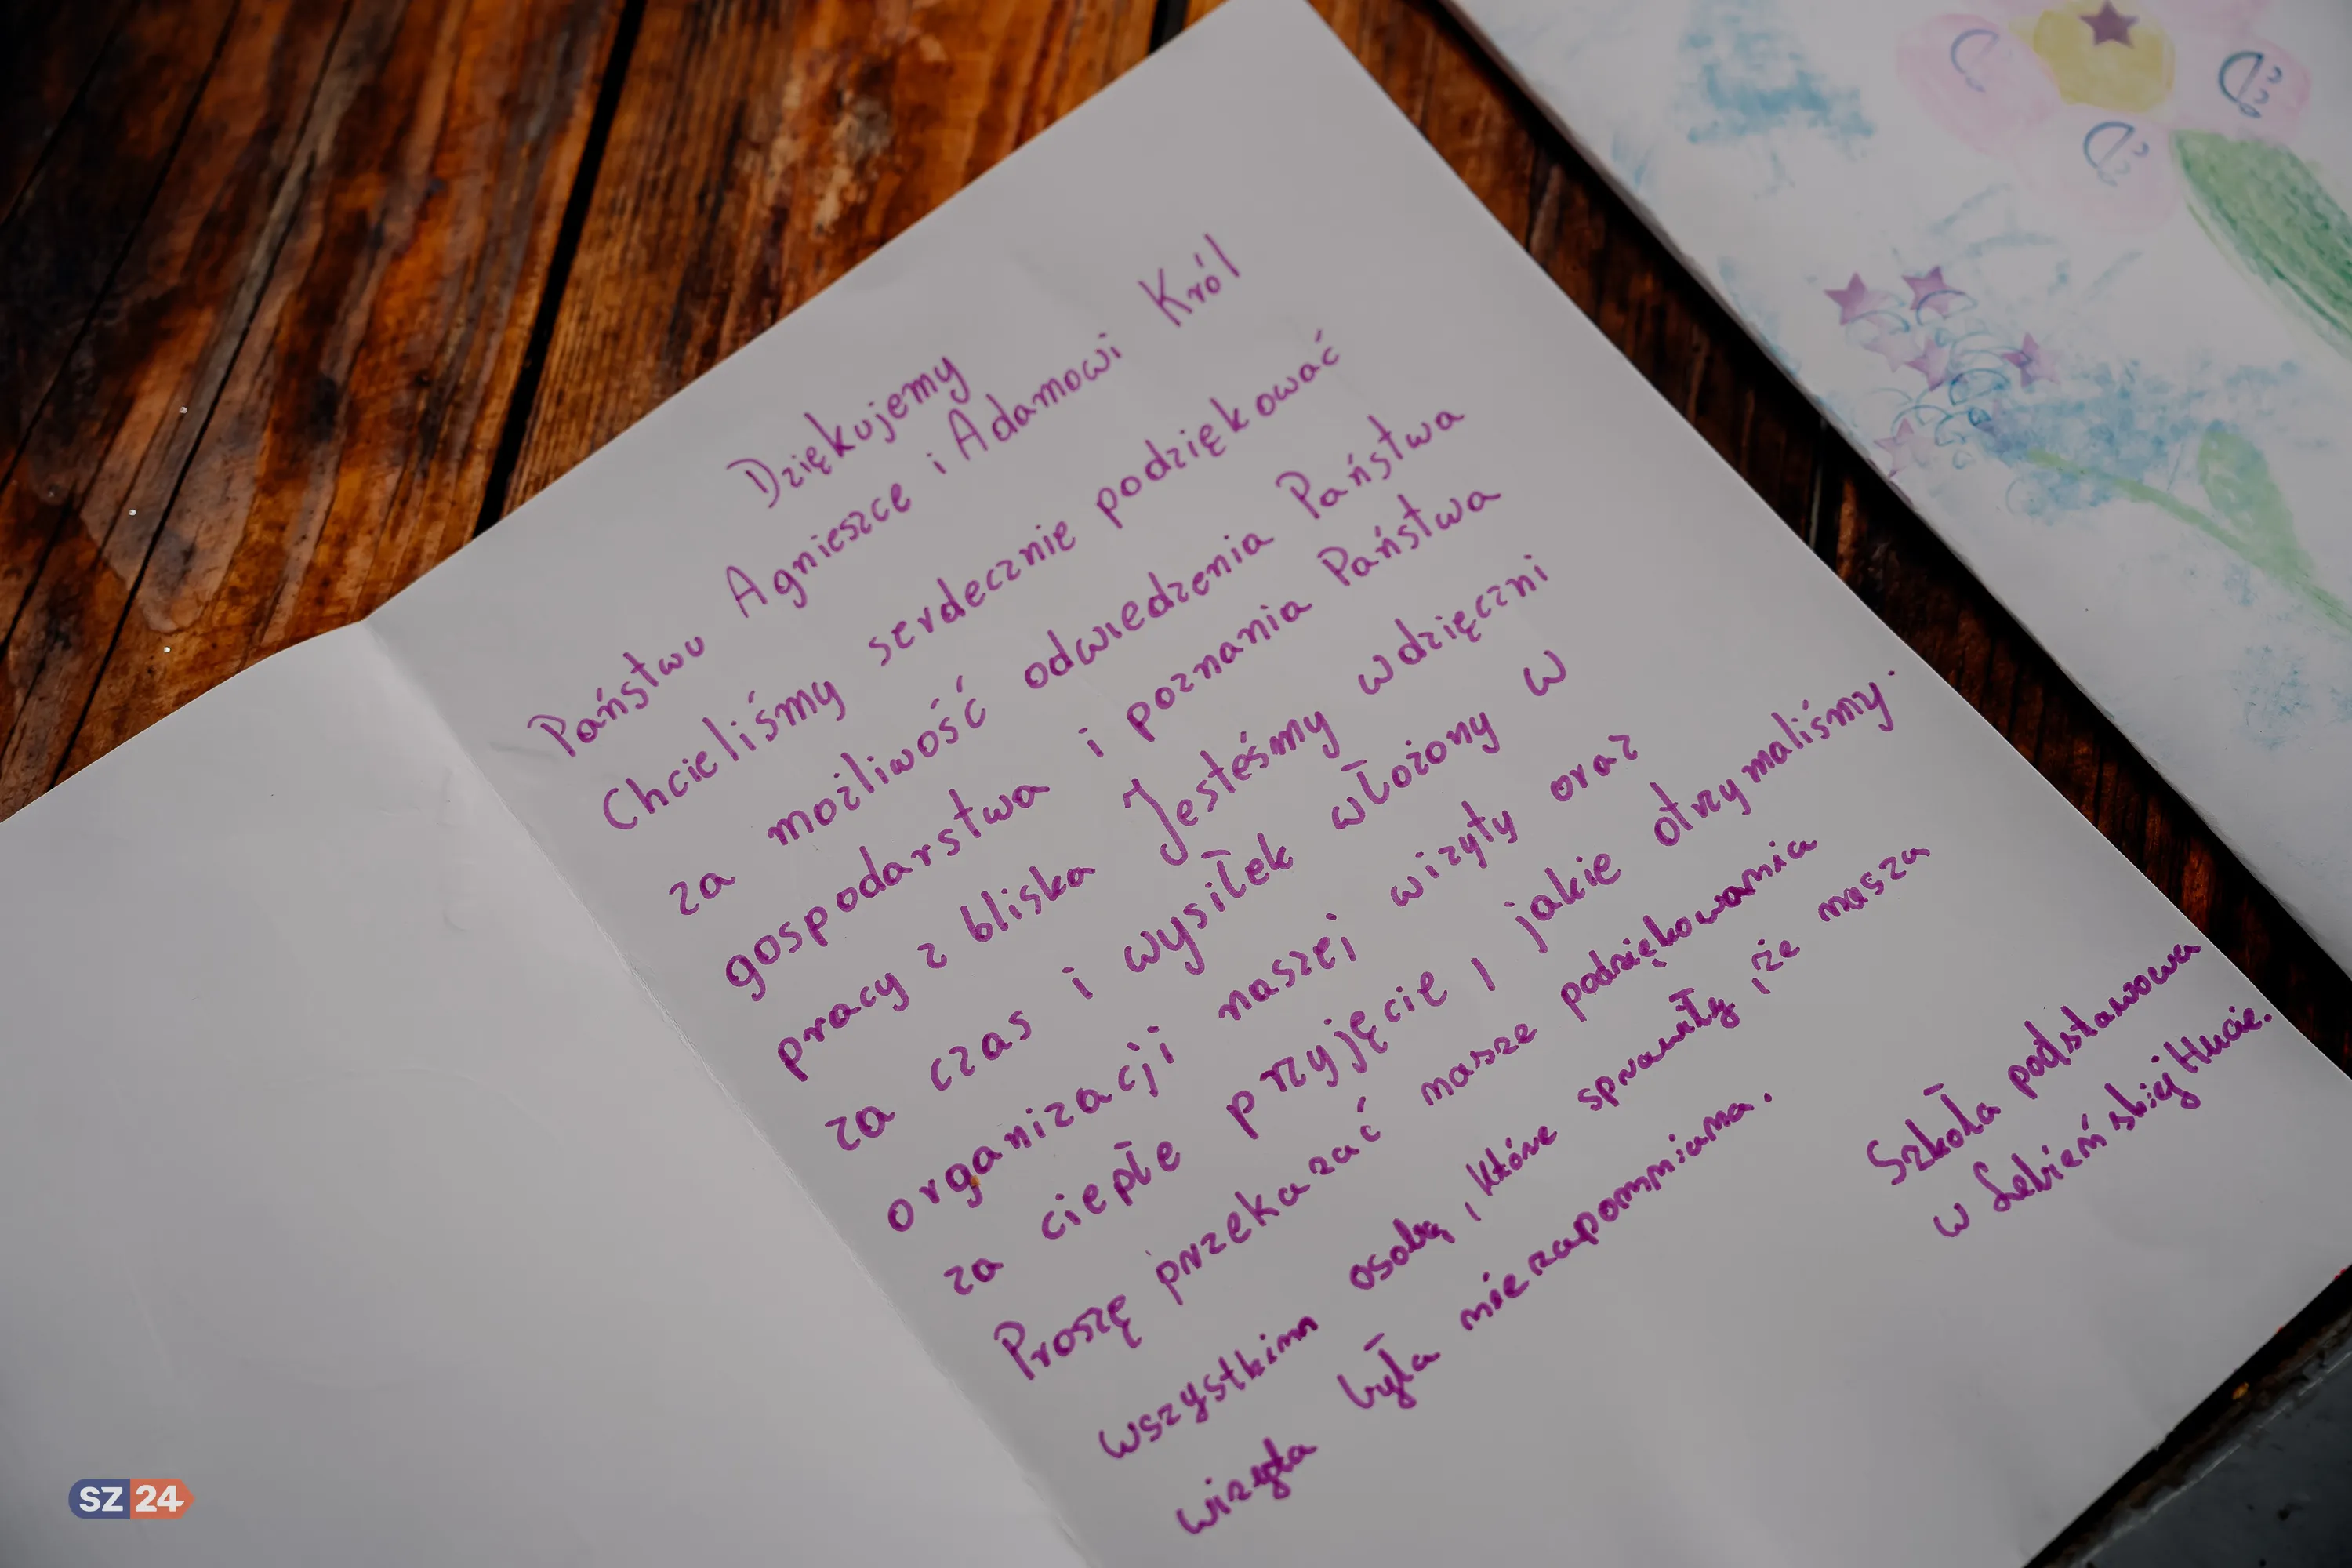 Dziękujemy
Państwu Agnieszce i Adamowi Król
Chcieliśmy serdecznie podziękować
za możliwość odwiedzenia Państwa
gospodarstwa i poznania Państwa
pracy z bliska Jesteśmy wdzięczni
za czas i wysiłek włożony w
organizacji naszej wizyty oraz
za ciepłe przyjęcie, jakie otrzymaliśmy.
Proszę przekazać nasze podziękowania
wszystkim osobą, które sprawiły, że nasza
wizyta była niezapomniana.
Szkoła podstawowa
w Lebieńskiej Hucie.
SZ 24